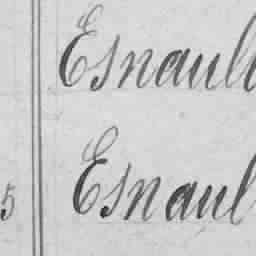 Esnaul
5 Esnaul